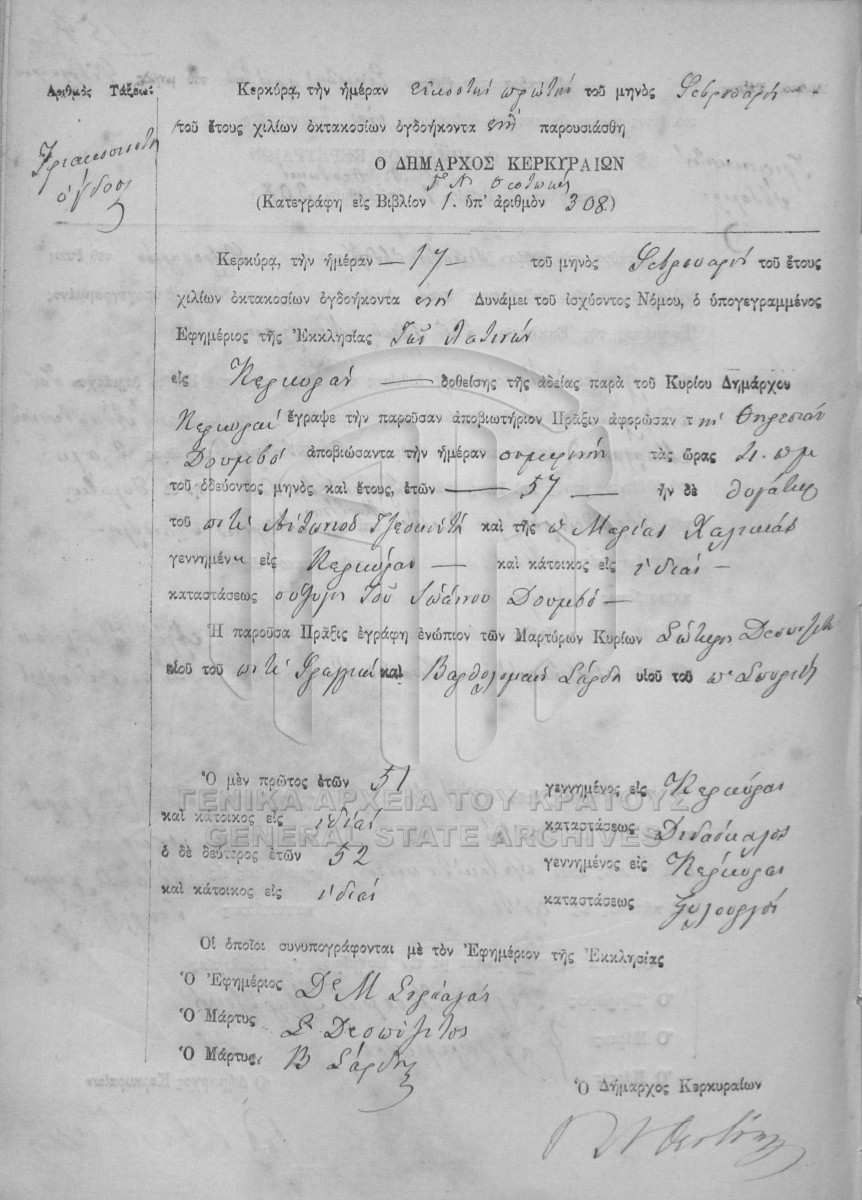 Ἀριθμὸς Τάξεως
Τριακοσιοστη
ὄγδοος
Κερκύρᾳ, τὴν ἡμέραν εἰκοστὴν πρώτην τοῦ μηνὸς Φεβρουαρίου
τοῦ ἔτους χιλίων ὀκτακοσίων ὀγδοήκοντα παρουσιάσθη
Ο ΔΗΜΑΡΧΟΣ ΚΕΡΚΥΡΑΙΩΝ
Γ Ν Θεοτόκης
(Κατεγράφη εἰς Βιβλίον 1. ὑπ' ἀριθμὸν 308)
Κερκύρᾳ, τὴν ἡμέραν — 17 — τοῦ μηνὸς Φεβρουαρίου τοῦ ἔτους
χιλίων ὀκτακοσίων ὀγδοήκοντα Δυνάμει τοῦ ἰσχύοντος Νόμου, ὁ ὑπογεγραμμένος
Ἐφημέριος τῆς Ἐκκλησίας τῶν Λατίνων
εἰς Κέρκυραν — δοθείσης τῆς ἀδείας παρὰ τοῦ Κυρίου Δημάρχου
ἔγραψε τὴν παροῦσαν ἀποβιωτήριον Πρᾶξιν ἀφορῶσαν τὴν Θηρεσίαν
Δουμβὸ ἀποβιώσαντα τὴν ἡμέραν σημερινὴν τὰς ὥρας π.μ.
τοῦ ὁδεύοντος μηνὸς καὶ ἔτους, ἐτῶν — 57 — ἦν δὲ θυγάτηρ
τοῦ ποτὲ Ἀντωνίου καὶ τῆς π Μαρίας
γεννημένη εἰς Κέρκυραν — καὶ κάτοικος εἰς ἰδίαν —
καταστάσεως σύζυγος τοῦ Ἰωάννου Δουμβὸ —
Ἡ παροῦσα Πρᾶξις ἐγράφη ἐνώπιον τῶν Μαρτύρων Κυρίων Σωτήρη Δεσπότζητου
υἱοῦ τοῦ ποτὲ καὶ Βαρθολομαίου Σάρδη υἱοῦ τοῦ π. Σπυρίδ
Ὁ μὲν πρῶτος ἐτῶν 51 γεννημένος εἰς Κέρκυραν
καὶ κάτοικος εἰς ἰδίαν καταστάσεως Διδάσκαλος
ὁ δὲ δεύτερος ἐτῶν 52 γεννημένος εἰς Κέρκυραν
καὶ κάτοικος εἰς ἰδίαν καταστάσεως Ξυλουργὸς
ΓΕΝΙΚΑ ΑΡΧΕΙΑ ΤΟΥ ΚΡΑΤΟΥΣ
GENERAL STATE ARCHIVES
Οἱ ὁποῖοι συνυπογράφονται μὲ τὸν Ἐφημέριον τῆς Ἐκκλησίας
Ὁ Ἐφημέριος Δ. Μ
Ὁ Μάρτυς Σ Δεσπότζητος
Ὁ Μάρτυς Β Σάρδης
Ὁ Δήμαρχος Κερκυραίων
Γ Ν Θεοτόκης